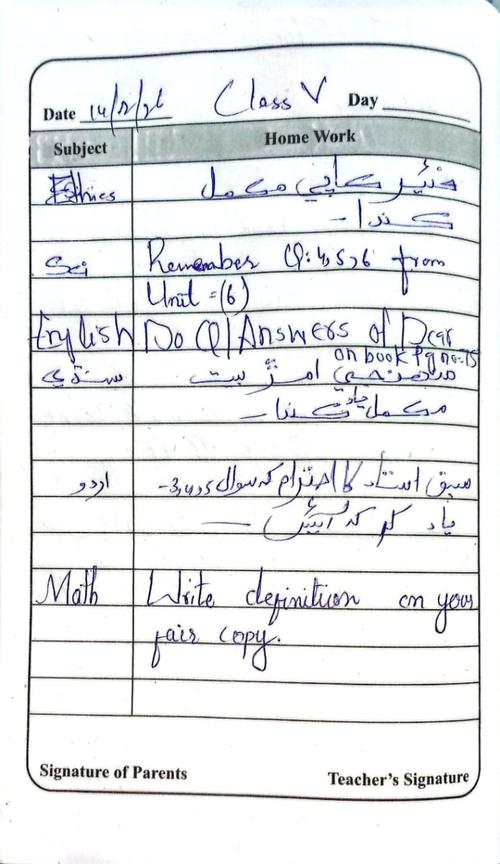 Date 14/2/26 Class V Day
Subject Home Work
Ethics فئير ڪاپي مڪمل
ڪندا -
Sci Remember Q: 4,5,6 from
Unit = (6)
English Do Q/Answers of Dear
on book Pg no=75
سنڌي منهنجي امڙ بيت
مڪمل ياد ڪندا -
اردو سبق استاد کا احترام کہ سوال 3,4,5-
یاد کر کہ آئیں
Math Write definition on your
fair copy.
Signature of Parents Teacher's Signature